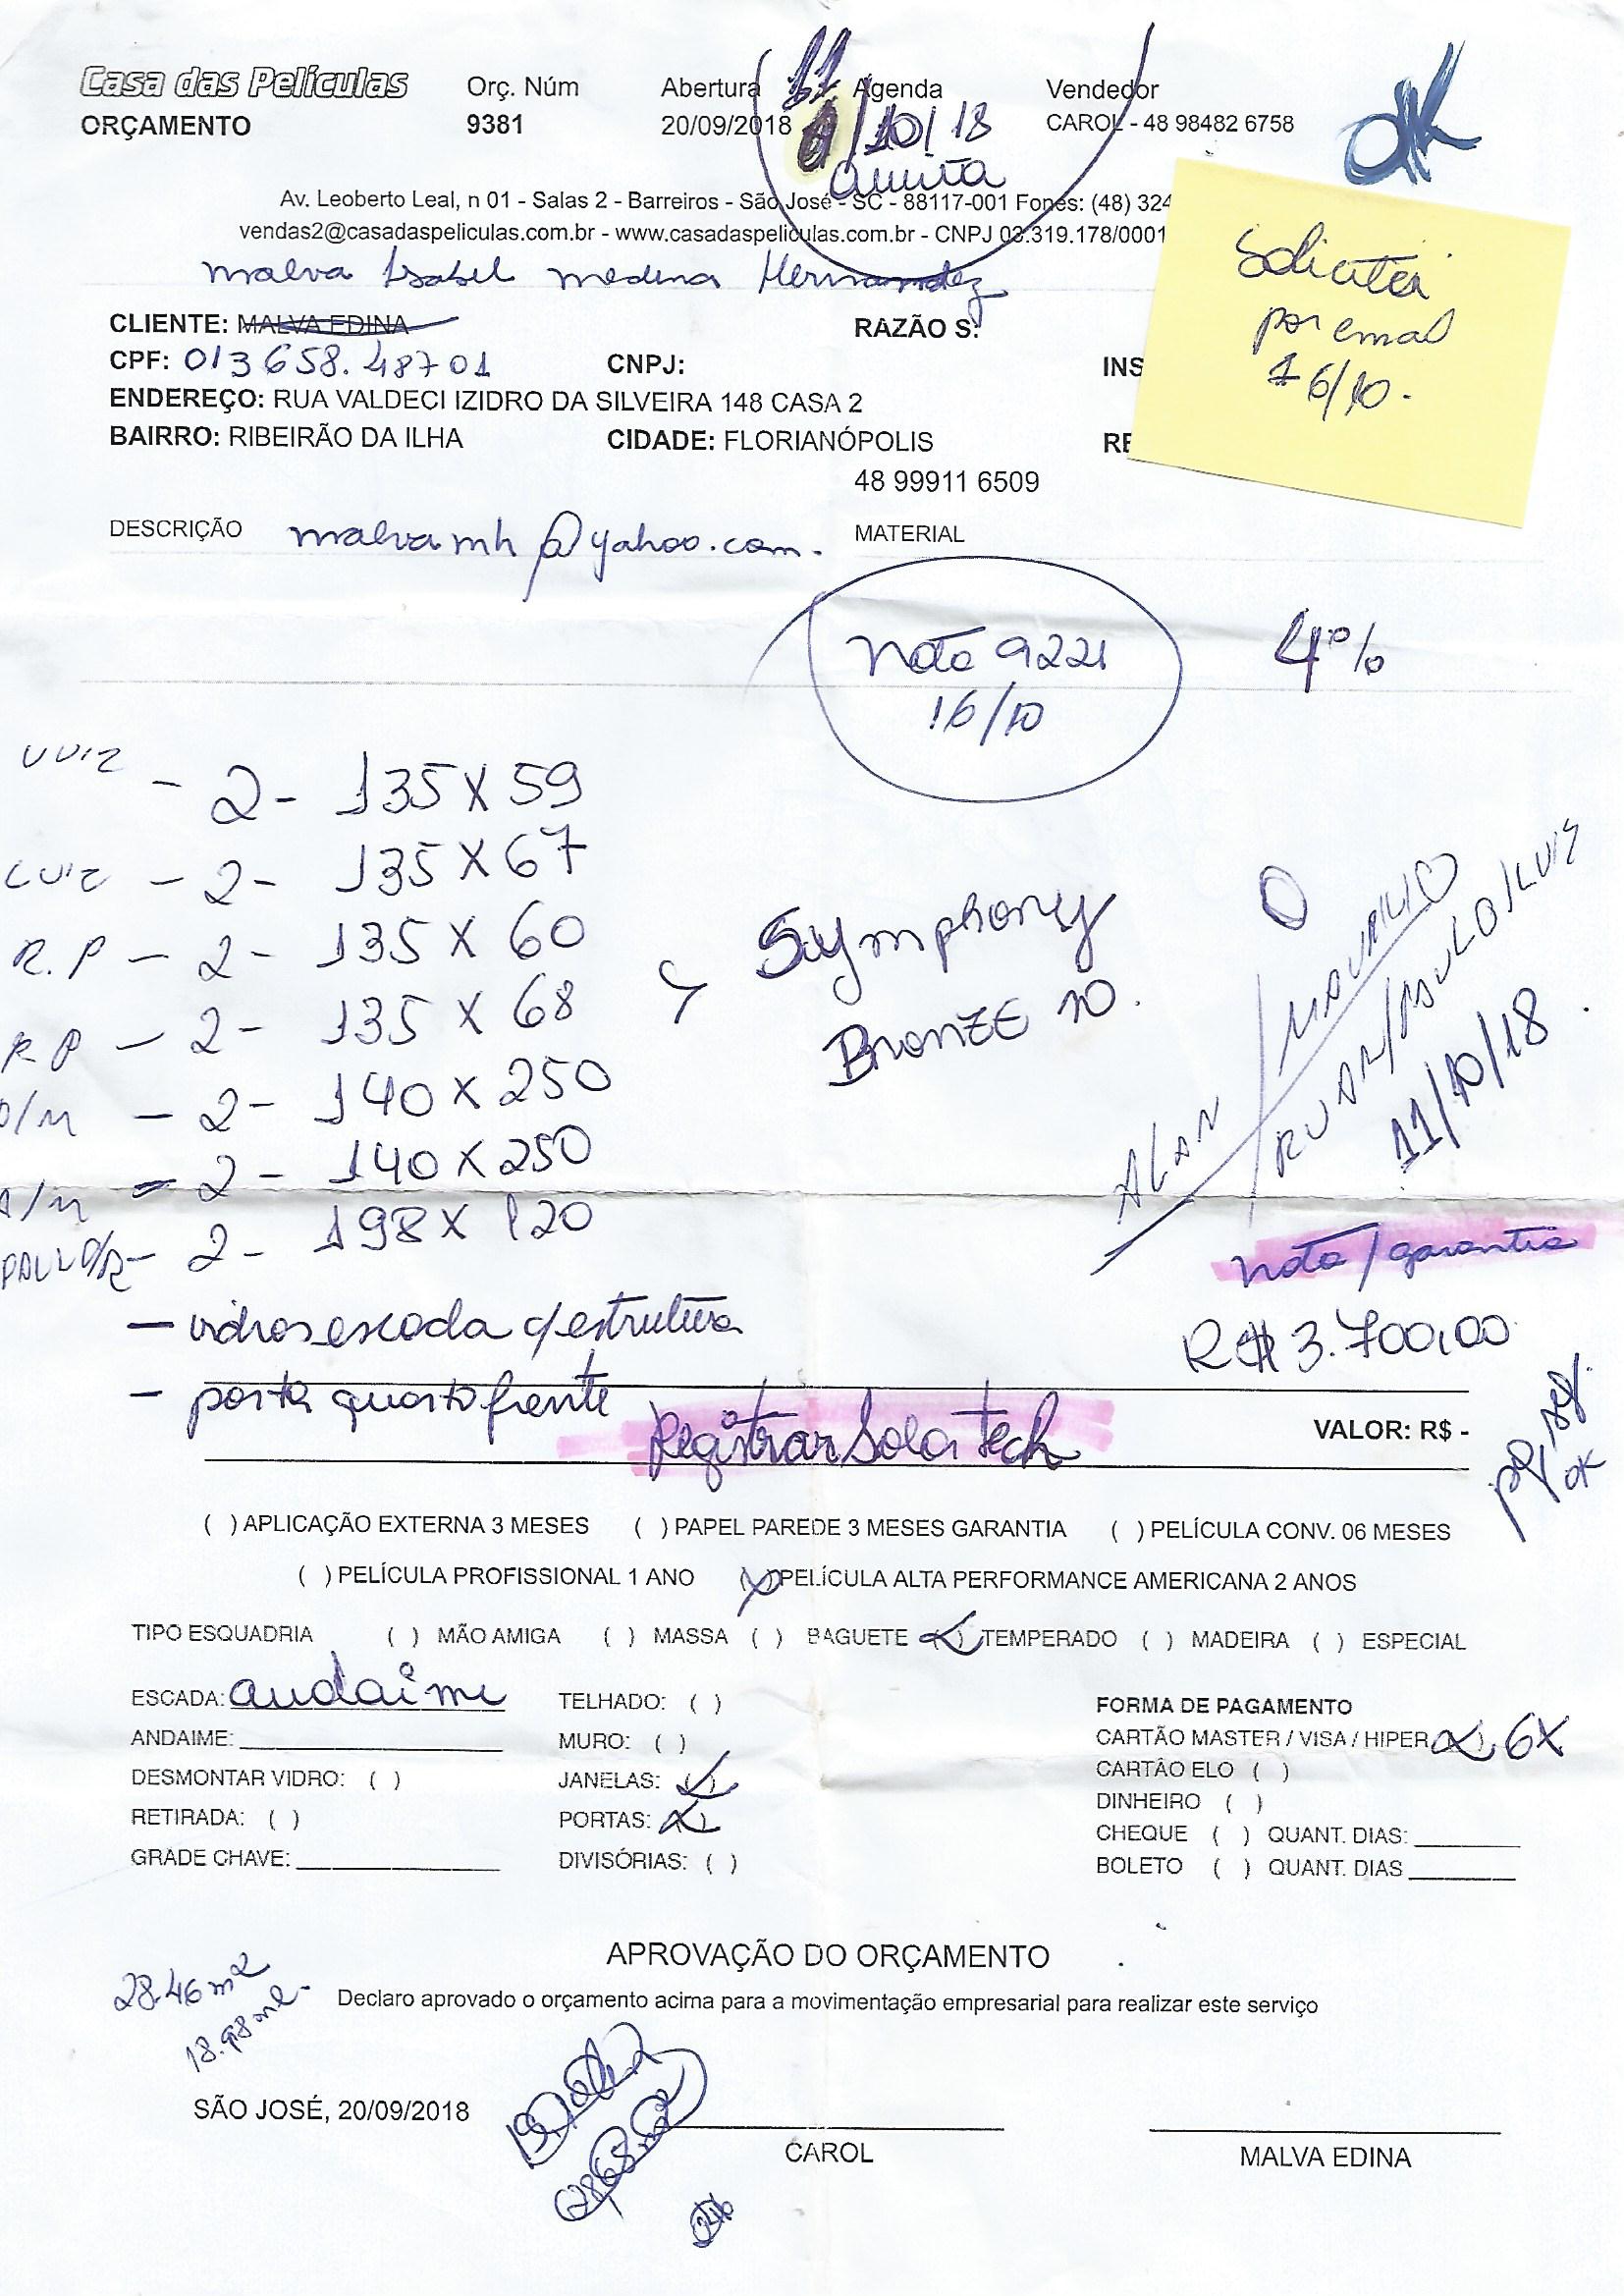 Casa das Películas Orç. Núm Abertura Agenda Vendedor
ORÇAMENTO 9381 20/09/2018 11/10/18 CAROL - 48 98482 6758
OK
Quinta
Av. Leoberto Leal, n 01 - Salas 2 - Barreiros - São José - SC - 88117-001 Fones: (48) 324
vendas2@casadaspeliculas.com.br - www.casadaspeliculas.com.br - CNPJ 03.319.178/0001
Solicitei
por email
16/10.
Malva Isabel Medina Hernandez
CLIENTE: MALVA EDINA RAZÃO S:
CPF: 013658.48701 CNPJ: INS
ENDEREÇO: RUA VALDECI IZIDRO DA SILVEIRA 148 CASA 2
BAIRRO: RIBEIRÃO DA ILHA CIDADE: FLORIANÓPOLIS RE
48 99911 6509
DESCRIÇÃO malvamh@yahoo.com. MATERIAL
Nota 9221 4%
16/10
LUIZ - 2 - 135 X 59
LUIZ - 2 - 135 X 67
R.P - 2 - 135 X 60
R P - 2 - 135 X 68
/M - 2 - 140 X 250
A/M - 2 - 140 X 250
PAULO/R - 2 - 198 X 120
Symphony
Bronze 10.
ALAN / MAURILIO
RUAN/PAULO/LUIS
11/10/18.
- vidros escada c/estrutura
- porta quarto frente
nota / garantia
R$ 3.700,00
Registrar Solartech
VALOR: R$ -
OK
( ) APLICAÇÃO EXTERNA 3 MESES ( ) PAPEL PAREDE 3 MESES GARANTIA ( ) PELÍCULA CONV. 06 MESES
( ) PELÍCULA PROFISSIONAL 1 ANO (X) PELÍCULA ALTA PERFORMANCE AMERICANA 2 ANOS
TIPO ESQUADRIA ( ) MÃO AMIGA ( ) MASSA ( ) BAGUETE (X) TEMPERADO ( ) MADEIRA ( ) ESPECIAL
ESCADA: andaime TELHADO: ( ) FORMA DE PAGAMENTO
ANDAIME: MURO: ( ) CARTÃO MASTER / VISA / HIPER (X) 6X
DESMONTAR VIDRO: ( ) JANELAS: (X) CARTÃO ELO ( )
RETIRADA: ( ) PORTAS: (X) DINHEIRO ( )
GRADE CHAVE: DIVISÓRIAS: ( ) CHEQUE ( ) QUANT. DIAS:
BOLETO ( ) QUANT. DIAS
APROVAÇÃO DO ORÇAMENTO
28.46 m2
18.98 ml-
Declaro aprovado o orçamento acima para a movimentação empresarial para realizar este serviço
SÃO JOSÉ, 20/09/2018
CAROL MALVA EDINA